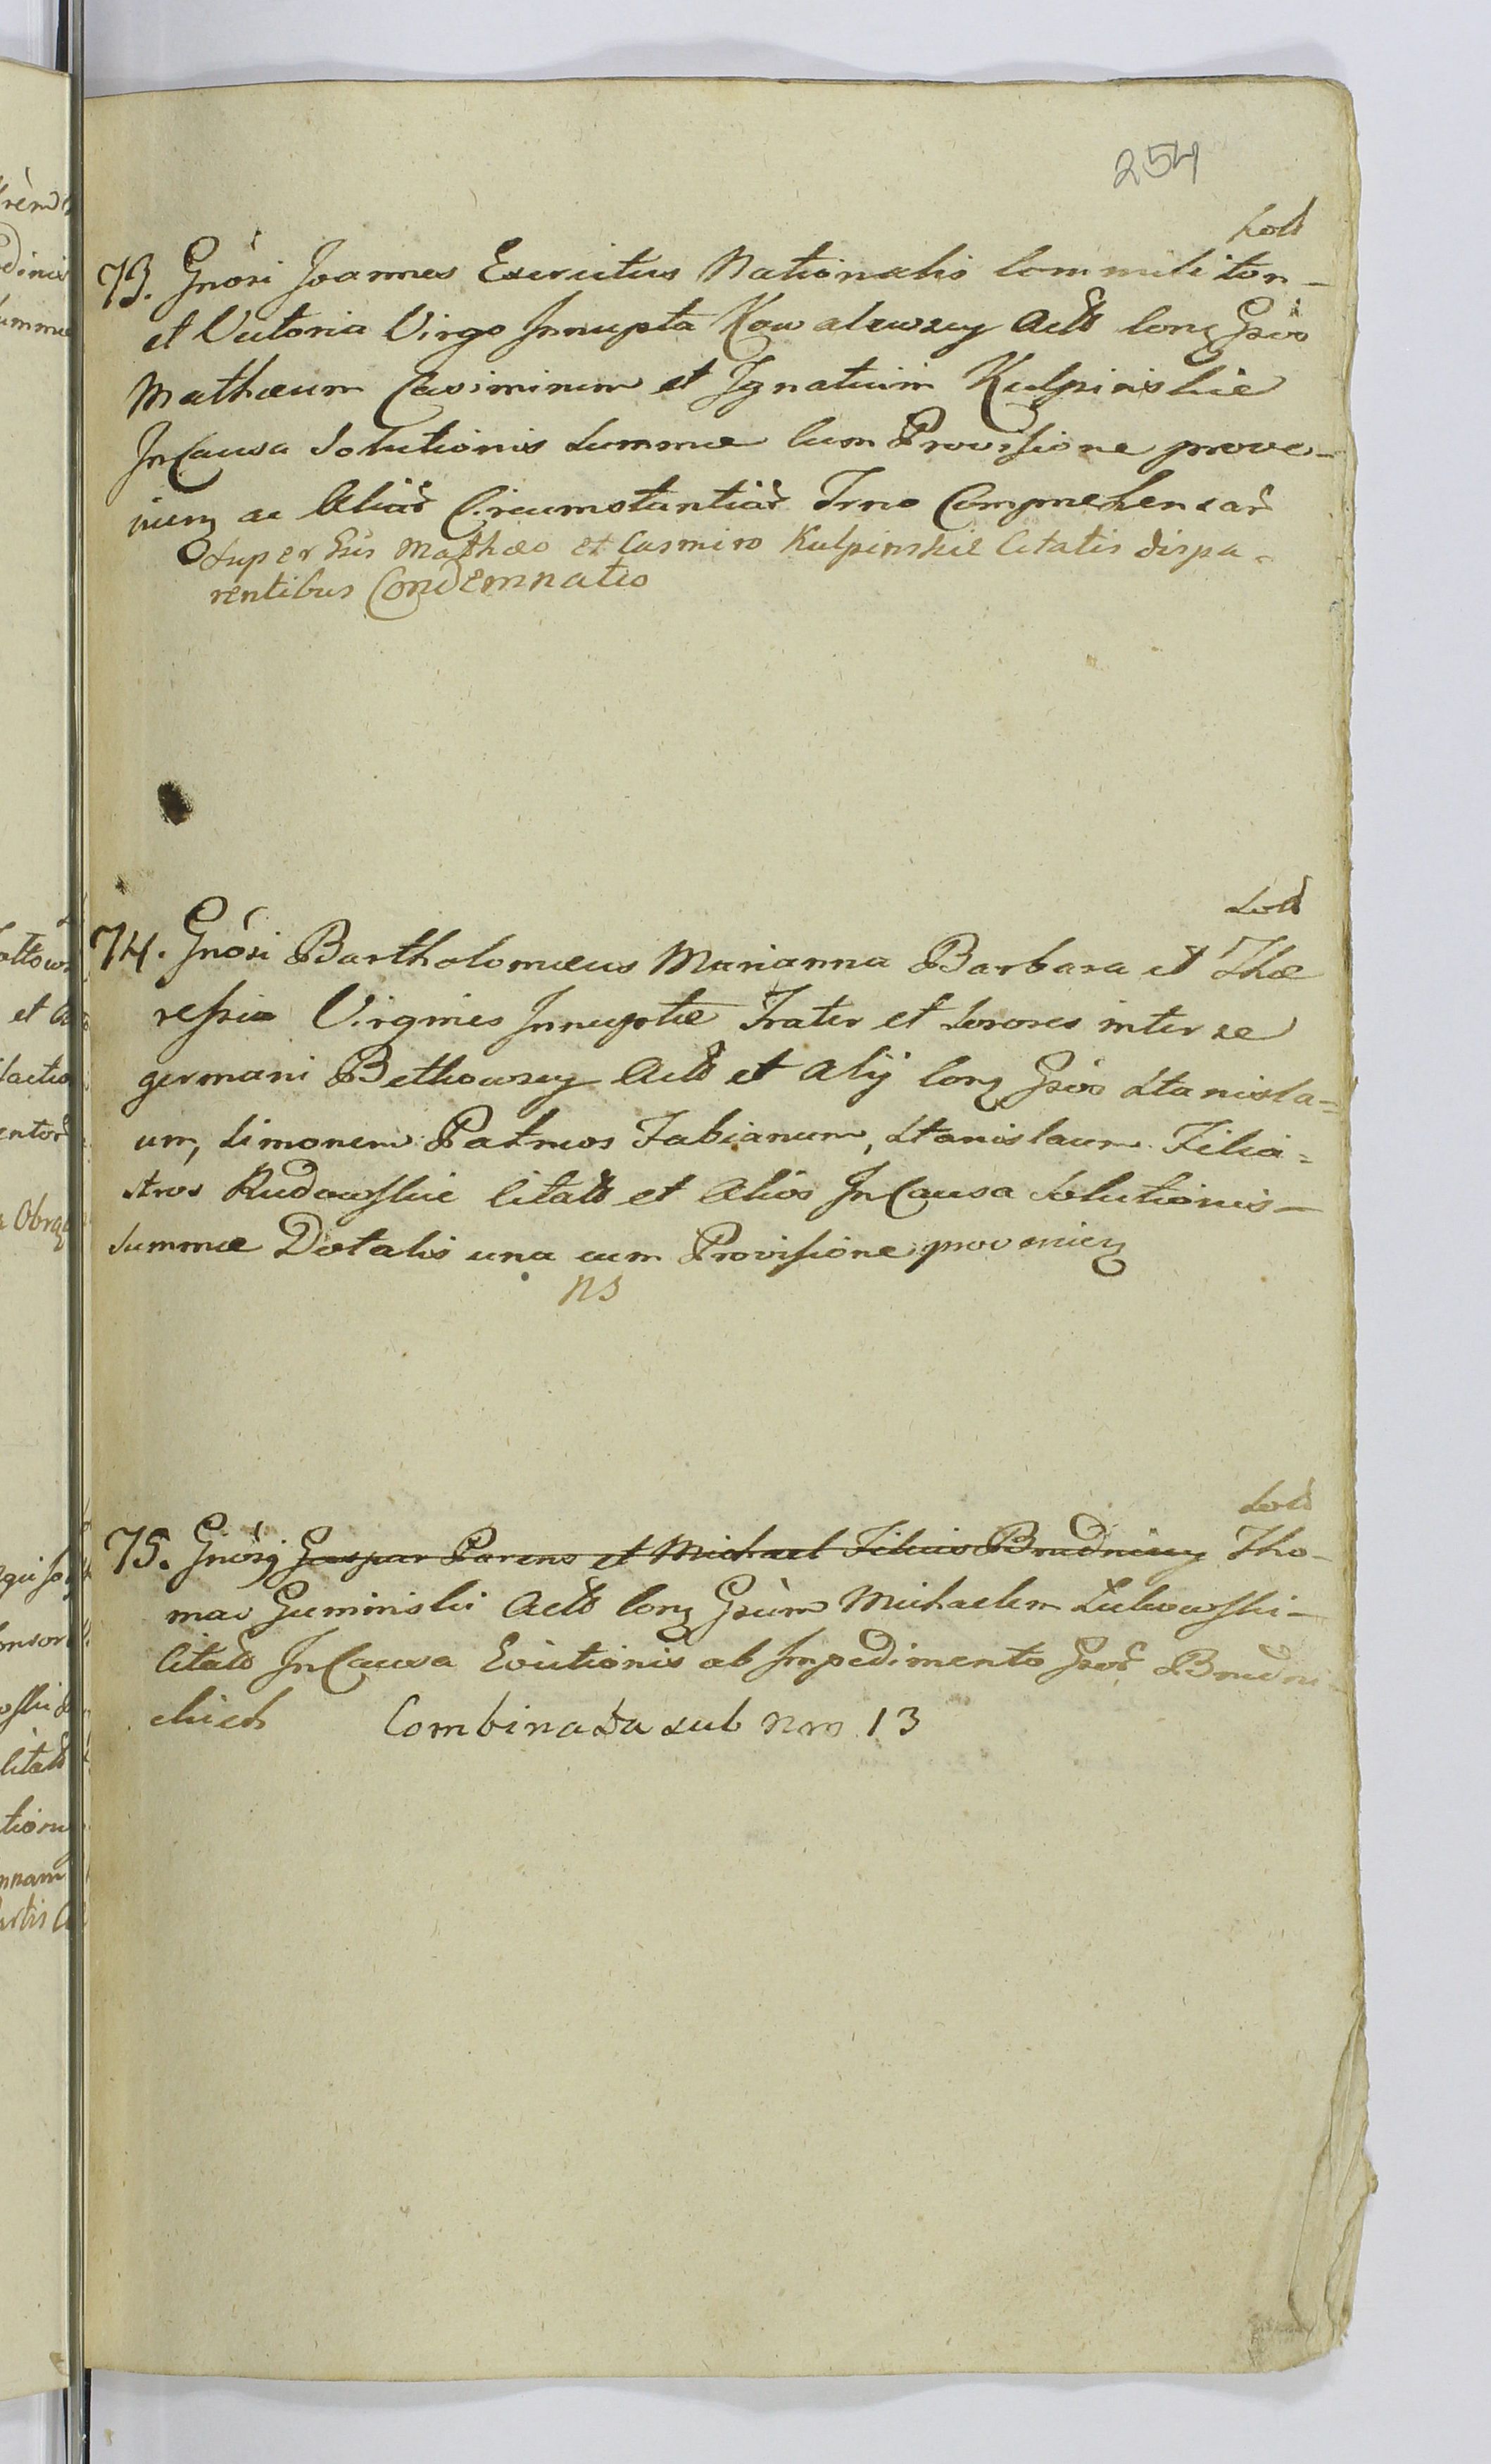 254
Sold
73. Gnôsi Joannes Exercitus Nationalis Commiliton-
et Victoria Virgo Innupta Kowalewscy Actt Conq Gsôs
Mathæum Casimirum et Ignatium Kulpinskie
In Causa Solutionis Summæ Cum Provisione prove-
nienq ac Aliar Circumstantiar Trno Comprehensar
Super Gsis Mathæo et Casmiro Kulpinskie Citatis dispa-
rentibus Condemnatio
Sold
74. Gnôsi Bartholomæus Marianna Barbara et The
ressia Virgines Innuptæ Frater et Sorores inter se
germani Betkowscy Actt et Alij Conq Gsôs Stanisla=
um, Simonem Patruos Fabianum, Stanislaum Filia=
stros Rudowskie Citatt et Alios In Causa Solutionis-
Summæ Dotalis una cum Provisione provenienq
NS
Sold
75. Gnôsj Gaspar Parens et Michael Filius Brudniccy Tho-
mas Guminski Actt Conq Gsûm Michaelem Lukowski-
Citatt In Causa Evictionis ab Impedimento Gsor Brudni-
ckich Combinata sub Nro 13